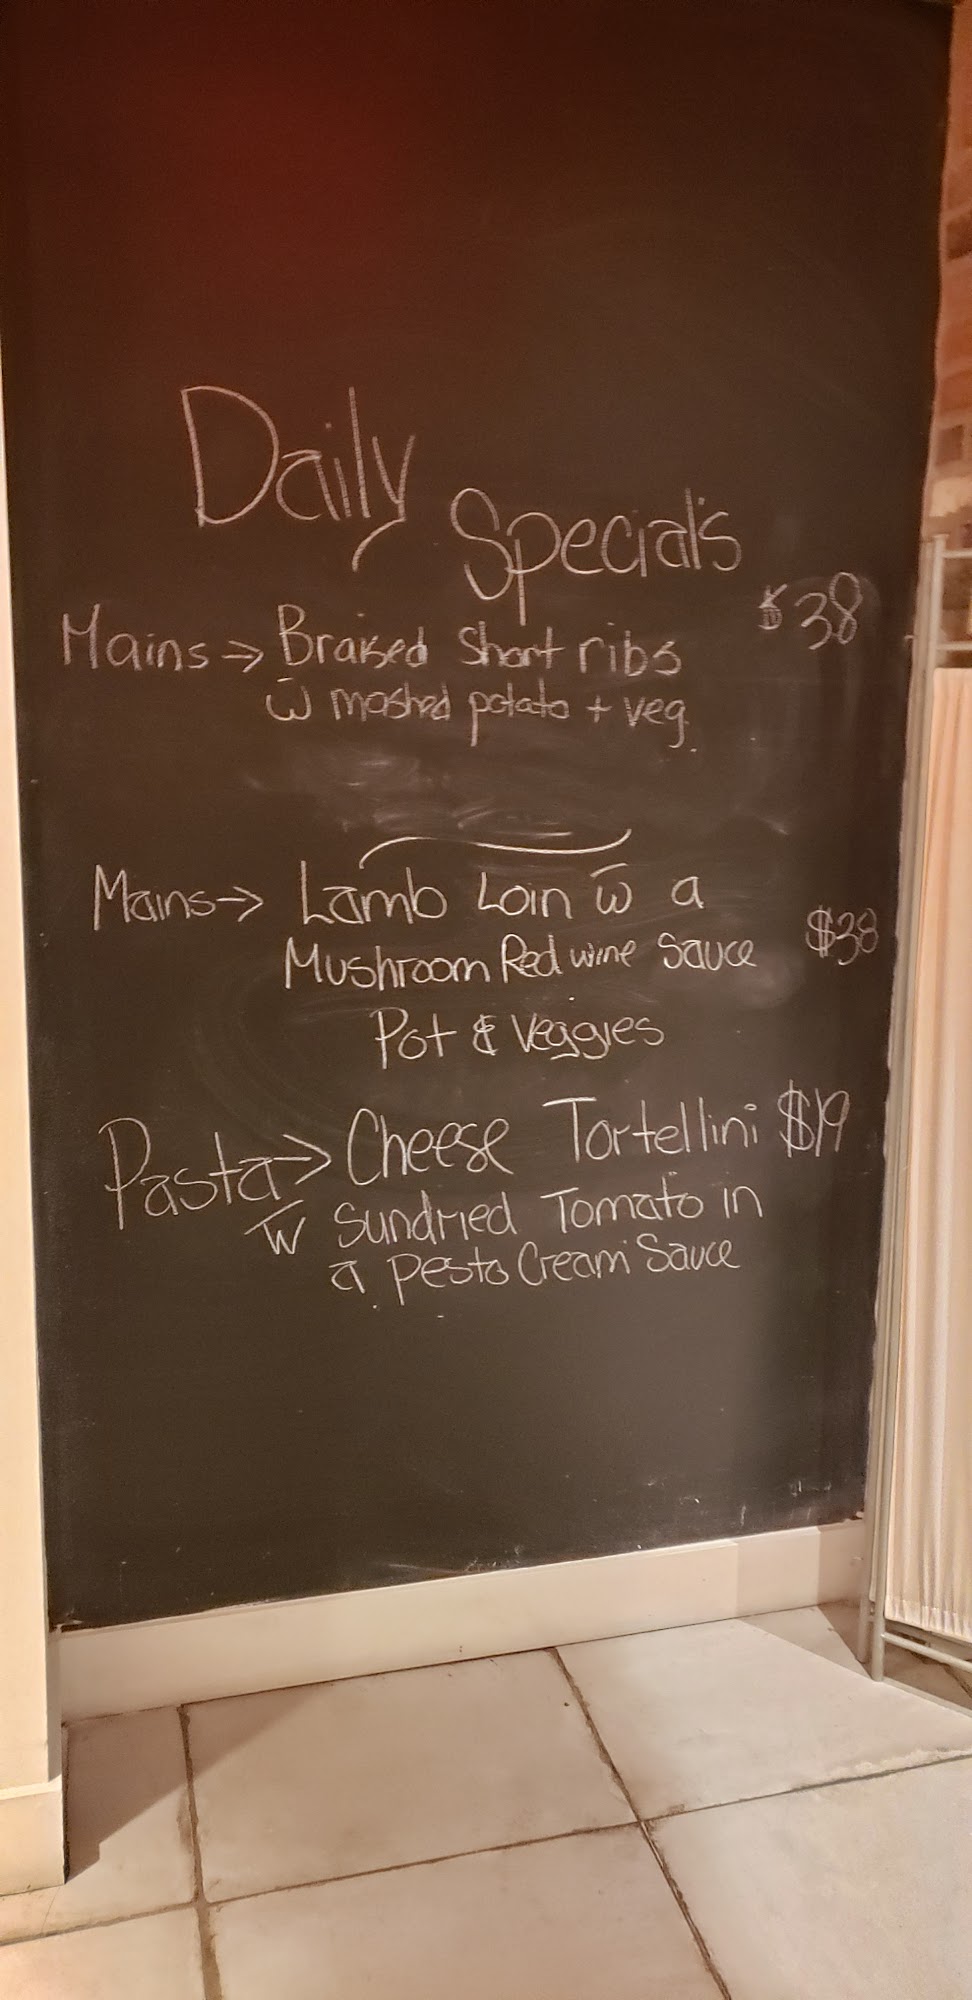 Daily
Special's
Mains → Braised Short ribs $38
w̅ mashed potato + veg.
Mains → Lamb Loin w̅ a
Mushroom Red wine Sauce $38
Pot & Veggies
Pasta → Cheese Tortellini $19
w̅ Sundried Tomato in
a pesto Cream Sauce